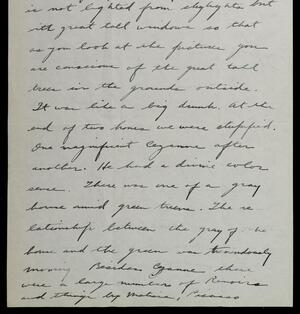 is not lighted from skylights but
with great tall windows so that
as you look at the pictures you
are conscious of the great tall
trees in the grounds outside.
It was like a big drunk. At the
end of two hours we were stupified.
One magnificent Cezanne after
another. He had a divine color
sense. There was one of a gray
house amid green trees. The re
lationship between the gray of the
house and the green was tremendously
moving. Besides Cezanne there
were a large number of Renoirs
and things by Matisse, Picasso